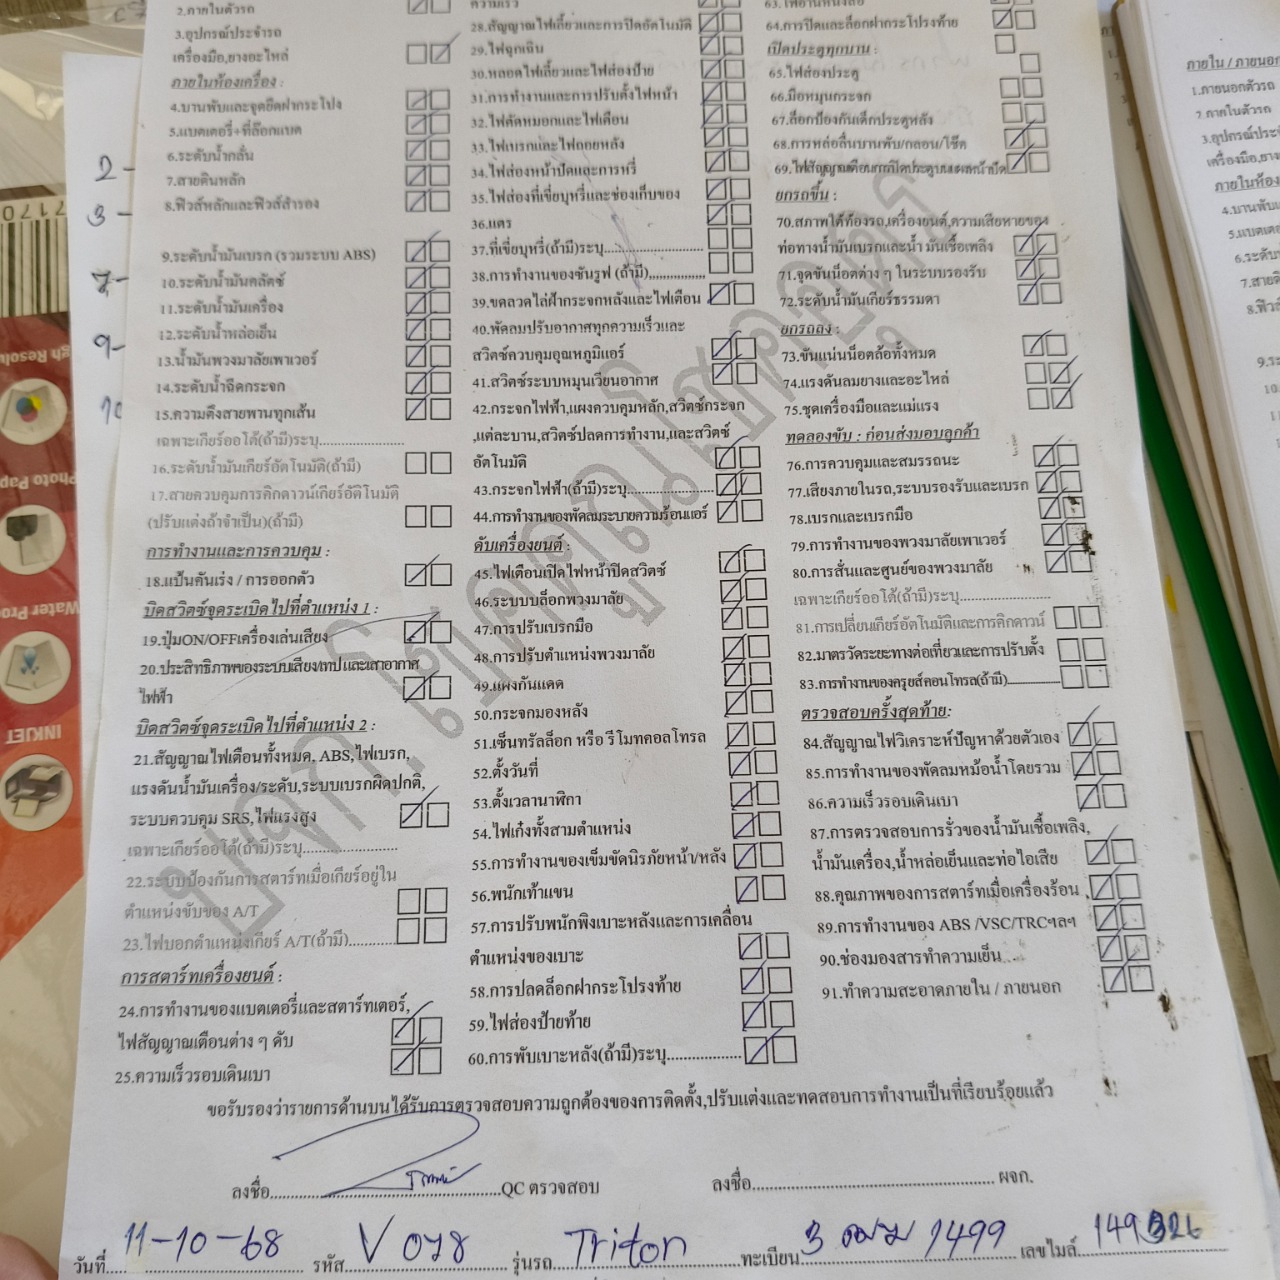 2.ภายในตัวรถ
3.อุปกรณ์ประจำรถ
เครื่องมือ,ยางอะไหล่
ภายในห้องเครื่อง :
4.บานพับและจุดยึดฝากระโปง
5.แบตเตอรี่+ที่ล๊อกแบต
6.ระดับน้ำกลั่น
7.สายดินหลัก
8.ฟิวส์หลักและฟิวส์สำรอง
9.ระดับน้ำมันเบรก (รวมระบบ ABS)
10.ระดับน้ำมันคลัตช์
11.ระดับน้ำมันเครื่อง
12.ระดับน้ำหล่อเย็น
13.น้ำมันพวงมาลัยเพาเวอร์
14.ระดับน้ำฉีดกระจก
15.ความตึงสายพานทุกเส้น
เฉพาะเกียร์ออโต้(ถ้ามี)ระบุ....................
16.ระดับน้ำมันเกียร์อัตโนมัติ(ถ้ามี)
17.สายควบคุมการคิกดาวน์เกียร์อัติโนมัติ
(ปรับแต่งถ้าจำเป็น)(ถ้ามี)
การทำงานและการควบคุม :
18.แป้นคันเร่ง / การออกตัว
บิดสวิตซ์จุดระเบิดไปที่ตำแหน่ง 1 :
19.ปุ่มON/OFFเครื่องเล่นเสียง
20.ประสิทธิภาพของระบบเสียง/เทป และเสาอากาศ
ไฟฟ้า
บิดสวิตซ์จุดระเบิดไปที่ตำแหน่ง 2 :
21.สัญญาณไฟเตือนทั้งหมด, ABS,ไฟเบรก,
แรงดันน้ำมันเครื่อง/ระดับ,ระบบเบรกผิดปกติ,
ระบบควบคุม SRS,ไฟแรงสูง
เฉพาะเกียร์ออโต้(ถ้ามี)ระบุ....................
22.ระบบป้องกันการสตาร์ทเมื่อเกียร์อยู่ใน
ตำแหน่งขับของ A/T
23.ไฟบอกตำแหน่งเกียร์ A/T(ถ้ามี)............
การสตาร์ทเครื่องยนต์ :
24.การทำงานของแบตเตอรี่และสตาร์ทเตอร์,
ไฟสัญญาณเตือนต่าง ๆ ดับ
25.ความเร็วรอบเดินเบา
ความเร็ว
28.สัญญาณไฟเลี้ยวและการปิดอัตโนมัติ
29.ไฟฉุกเฉิน
30.หลอดไฟเลี้ยวและไฟส่องป้าย
31.การทำงานและการปรับตั้งไฟหน้า
32.ไฟตัดหมอกและไฟเตือน
33.ไฟเบรกและไฟถอยหลัง
34.ไฟส่องหน้าปัดและการหรี่
35.ไฟส่องที่เขี่ยบุหรี่และช่องเก็บของ
36.แตร
37.ที่เขี่ยบุหรี่(ถ้ามี)ระบุ........................
38.การทำงานของซันรูฟ (ถ้ามี)..............
39.ขดลวดไล่ฝ้ากระจกหลังและไฟเตือน
40.พัดลมปรับอากาศทุกความเร็วและ
สวิตซ์ควบคุมอุณหภูมิแอร์
41.สวิตซ์ระบบหมุนเวียนอากาศ
42.กระจกไฟฟ้า,แผงควบคุมหลัก,สวิตซ์กระจก
,แต่ละบาน,สวิตซ์ปลดการทำงาน,และสวิตซ์
อัตโนมัติ
43.กระจกไฟฟ้า(ถ้ามี)ระบุ.....................
44.การทำงานของพัดลมระบายความร้อนแอร์
ดับเครื่องยนต์ :
45.ไฟเตือนเปิดไฟหน้าปิดสวิตซ์
46.ระบบบล็อกพวงมาลัย
47.การปรับเบรกมือ
48.การปรับตำแหน่งพวงมาลัย
49.แผงกันแดด
50.กระจกมองหลัง
51.เซ็นทรัลล็อก หรือ รีโมทคอลโทรล
52.ตั้งวันที่
53.ตั้งเวลานาฬิกา
54.ไฟเก๋งทั้งสามตำแหน่ง
55.การทำงานของเข็มขัดนิรภัยหน้า/หลัง
56.พนักเท้าแขน
57.การปรับพนักพิงเบาะหลังและการเคลื่อน
ตำแหน่งของเบาะ
58.การปลดล็อกฝากระโปรงท้าย
59.ไฟส่องป้ายท้าย
60.การพับเบาะหลัง(ถ้ามี)ระบุ..................
64.การปิดและล็อกฝากระโปรงท้าย
เปิดประตูทุกบาน :
65.ไฟส่องประตู
66.มือหมุนกระจก
67.ล็อกป้องกันเด็กประตูหลัง
68.การหล่อลื่นบานพับ/กลอน/โช๊ค
69.ไฟสัญญาณเตือนการปิดประตูบนแผงหน้าปัด
ยกรถขึ้น :
70.สภาพใต้ท้องรถ,เครื่องยนต์,ความเสียหายของ
ท่อทางน้ำมันเบรกและน้ำมันเชื้อเพลิง
71.จุดขันน็อตต่าง ๆ ในระบบรองรับ
72.ระดับน้ำมันเกียร์ธรรมดา
ยกรถลง :
73.ขันแน่นน็อตล้อทั้งหมด
74.แรงดันลมยางและอะไหล่
75.ชุดเครื่องมือและแม่แรง
ทดลองขับ : ก่อนส่งมอบลูกค้า
76.การควบคุมและสมรรถนะ
77.เสียงภายในรถ,ระบบรองรับและเบรก
78.เบรกและเบรกมือ
79.การทำงานของพวงมาลัยเพาเวอร์
80.การสั่นและศูนย์ของพวงมาลัย
เฉพาะเกียร์ออโต้(ถ้ามี)ระบุ....................
81.การเปลี่ยนเกียร์อัตโนมัติและการคิกดาวน์
82.มาตรวัดระยะทางต่อเที่ยวและการปรับตั้ง
83.การทำงานของครุยส์คอนโทรล(ถ้ามี)..................
ตรวจสอบครั้งสุดท้าย:
84.สัญญาณไฟวิเคราะห์ปัญหาด้วยตัวเอง
85.การทำงานของพัดลมหม้อน้ำโดยรวม
86.ความเร็วรอบเดินเบา
87.การตรวจสอบการรั่วของน้ำมันเชื้อเพลิง,
น้ำมันเครื่อง,น้ำหล่อเย็นและท่อไอเสีย
88.คุณภาพของการสตาร์ทเมื่อเครื่องร้อน
89.การทำงานของ ABS /VSC/TRCฯลฯ
90.ช่องมองสารทำความเย็น
91.ทำความสะอาดภายใน / ภายนอก
ขอรับรองว่ารายการด้านบนได้รับการตรวจสอบความถูกต้องของการติดตั้ง,ปรับแต่งและทดสอบการทำงานเป็นที่เรียบร้อยแล้ว
ลงชื่อ..........................................QC ตรวจสอบ
ลงชื่อ............................................. ผจก.
วันที่ 11-10-68 รหัส V 078 รุ่นรถ Triton ทะเบียน 3 ฒฆ 1499 เลขไมล์ 149326